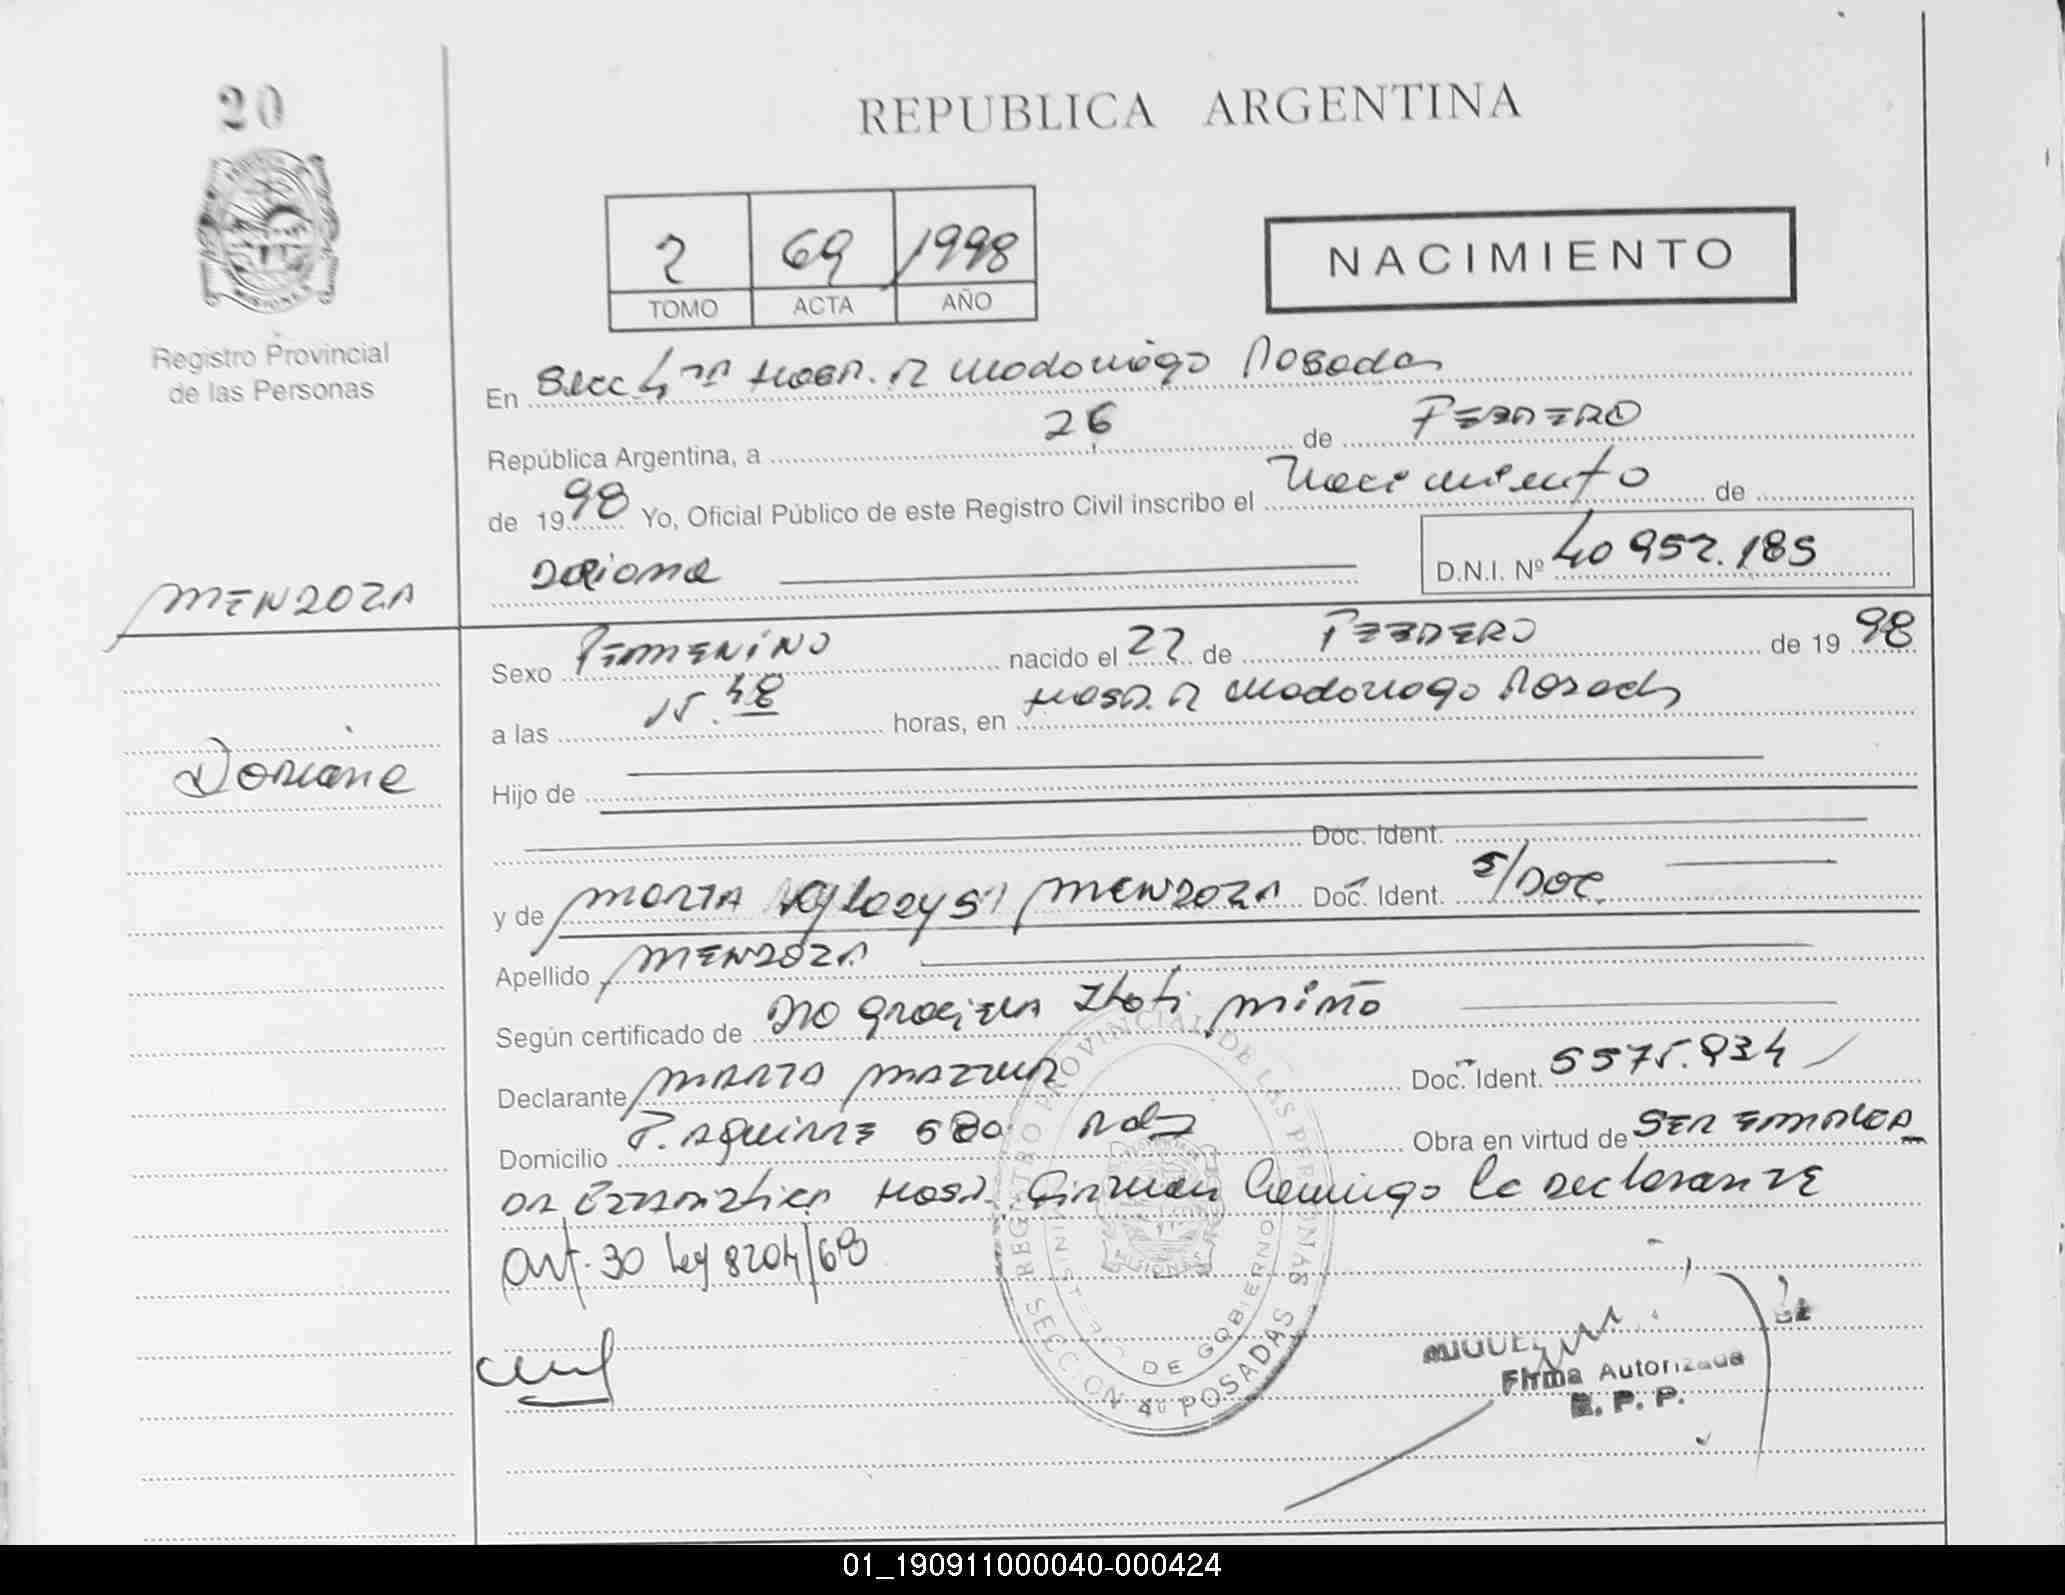 20
REPUBLICA ARGENTINA
2 69 1998
TOMO ACTA AÑO
NACIMIENTO
Registro Provincial
de las Personas
En Secc 4ta Hosp. R Madariaga Posadas
República Argentina, a 26 de FEBRERO
de 1998 Yo, Oficial Público de este Registro Civil inscribo el Nacimiento de
Doriana
D.N.I. Nº 40 952.185
MENDOZA
Doriana
Sexo FEMENINO nacido el 22 de FEBRERO de 1998
a las 15.48 horas, en Hosp. R Madariaga Posadas
Hijo de
Doc. Ident.
y de MARTA MENDOZA Doc. Ident. S/DOC.
Apellido MENDOZA
Según certificado de Graciela Miño
Declarante MARTA Doc. Ident. 5575.934
Domicilio P. AGUIRRE 680 Pdas Obra en virtud de SER EMPLEA
DA Hosp. la declarante
art. 30 ley 8204/68
REGISTRO PROVINCIAL DE LAS PERSONAS
MINISTERIO DE GOBIERNO
SECCION 4ta POSADAS
MIGUEL
Firma Autorizada
R. P. P.
01_190911000040-000424